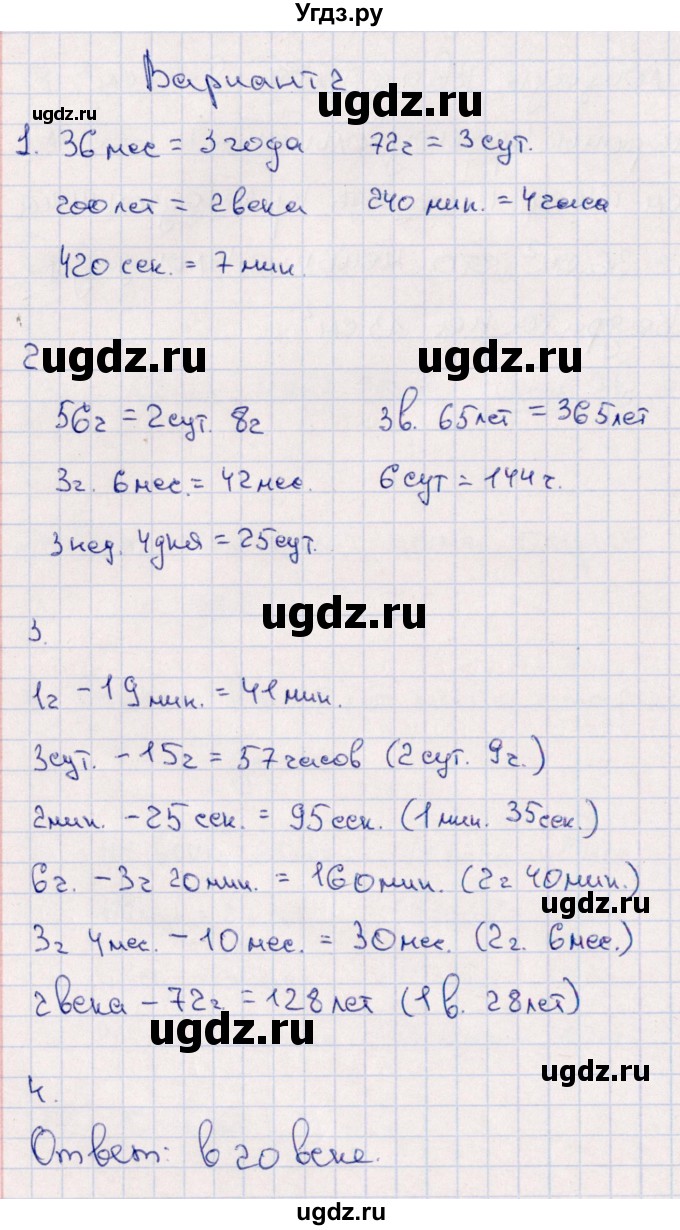 Угдз.ру
ugdz.ru
Вариант 2
ugdz.ru
1. 36 мес = 3 года 72ч = 3 сут.
200 лет = 2 века 240 мин. = 4 часа
420 сек. = 7 мин.
2. ugdz.ru ugdz.ru
56ч = 2 сут. 8ч 3в. 65 лет = 365 лет
3г. 6 мес. = 42 мес. 6 сут = 144 ч.
3 нед. 4 дня = 25 сут.
ugdz.ru
3.
1ч - 19 мин. = 41 мин.
3 сут. - 15ч = 57 часов (2 сут. 9ч.)
2 мин. - 25 сек. = 95 сек. (1 мин. 35 сек.)
6ч. - 3ч 20 мин. = 160 мин. (2ч 40 мин.)
ugdz.ru
3г 4 мес. - 10 мес. = 30 мес. (2г. 6 мес.)
2 века - 72г = 128 лет (1 в. 28 лет)
ugdz.ru
ugdz.ru
4.
Ответ: в 20 веке.